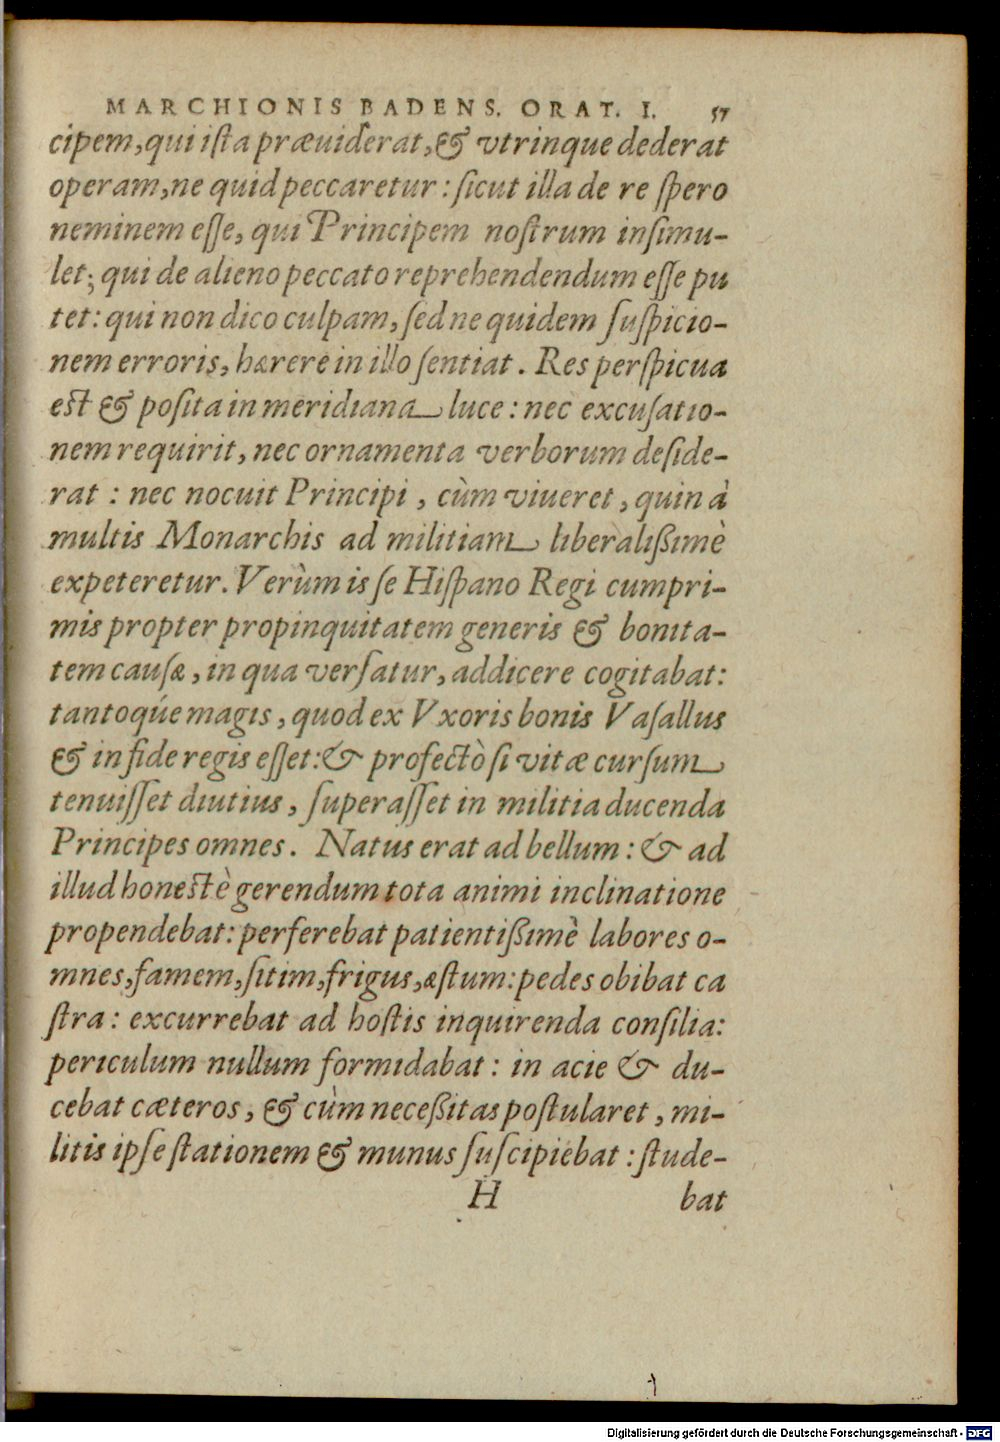 MARCHIONIS BADENS. ORAT. I. 57
cipem, qui ista præuiderat, & vtrinque dederat
operam, ne quid peccaretur: sicut illa de re spero
neminem esse, qui Principem nostrum insimu-
let; qui de alieno peccato reprehendendum esse pu
tet: qui non dico culpam, sed ne quidem suspicio-
nem erroris, hærere in illo sentiat. Res perspicua
est & posita in meridiana luce: nec excusatio-
nem requirit, nec ornamenta verborum deside-
rat: nec nocuit Principi, cùm viueret, quin à
multis Monarchis ad militiam liberalißimè
expeteretur. Verùm is se Hispano Regi cumpri-
mis propter propinquitatem generis & bonita-
tem causæ, in qua versatur, addicere cogitabat:
tantoqúe magis, quod ex Vxoris bonis Vasallus
& in fide regis esset: & profectò si vitæ cursum
tenuisset diutius, superasset in militia ducenda
Principes omnes. Natus erat ad bellum: & ad
illud honestè gerendum tota animi inclinatione
propendebat: perferebat patientißimè labores o-
mnes, famem, sitim, frigus, æstum: pedes obibat ca
stra: excurrebat ad hostis inquirenda consilia:
periculum nullum formidabat: in acie & du-
cebat cæteros, & cùm neceßitas postularet, mi-
litis ipse stationem & munus suscipiebat: stude-
H bat
Digitalisierung gefördert durch die Deutsche Forschungsgemeinschaft - DFG